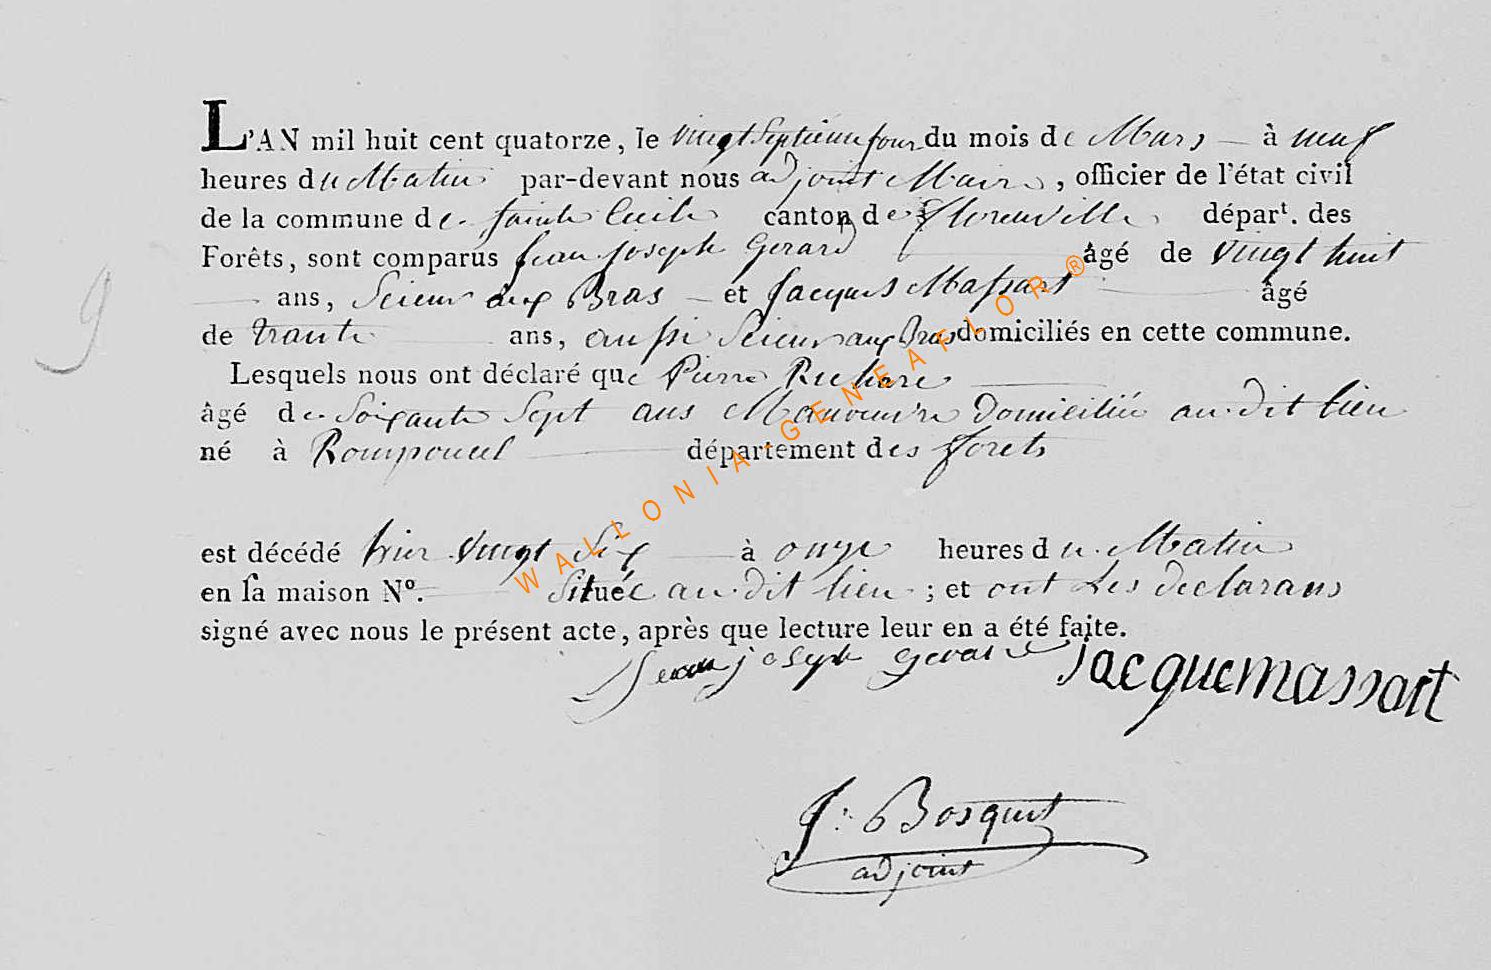 L'AN mil huit cent quatorze, le vingt Septieme jour du mois de Mars à neuf
heures du Matin par-devant nous adjoint Maire, officier de l'état civil
de la commune de Sainte Cecile canton de florenville départ. des
Forêts, sont comparus Jean Joseph Gerard âgé de vingt huit
ans, Scieur aux Bras et Jacques Massart âgé
de trante ans, aussi Scieur aux Bras domiciliés en cette commune.
Lesquels nous ont déclaré que Pierre
âgé de Soixante Sept ans Manouvre Domiciliée au dit lieu
né à Romponcel département des forets
est décédé hier vingt Six à onze heures du Matin
en sa maison N°. Située au dit lieu; et ont Les declarans
signé avec nous le présent acte, après que lecture leur en a été faite.
Jean joseph gerard jacque massart
J: Bosquet
adjoint
9
WALLONIA-GENEAFLOR®